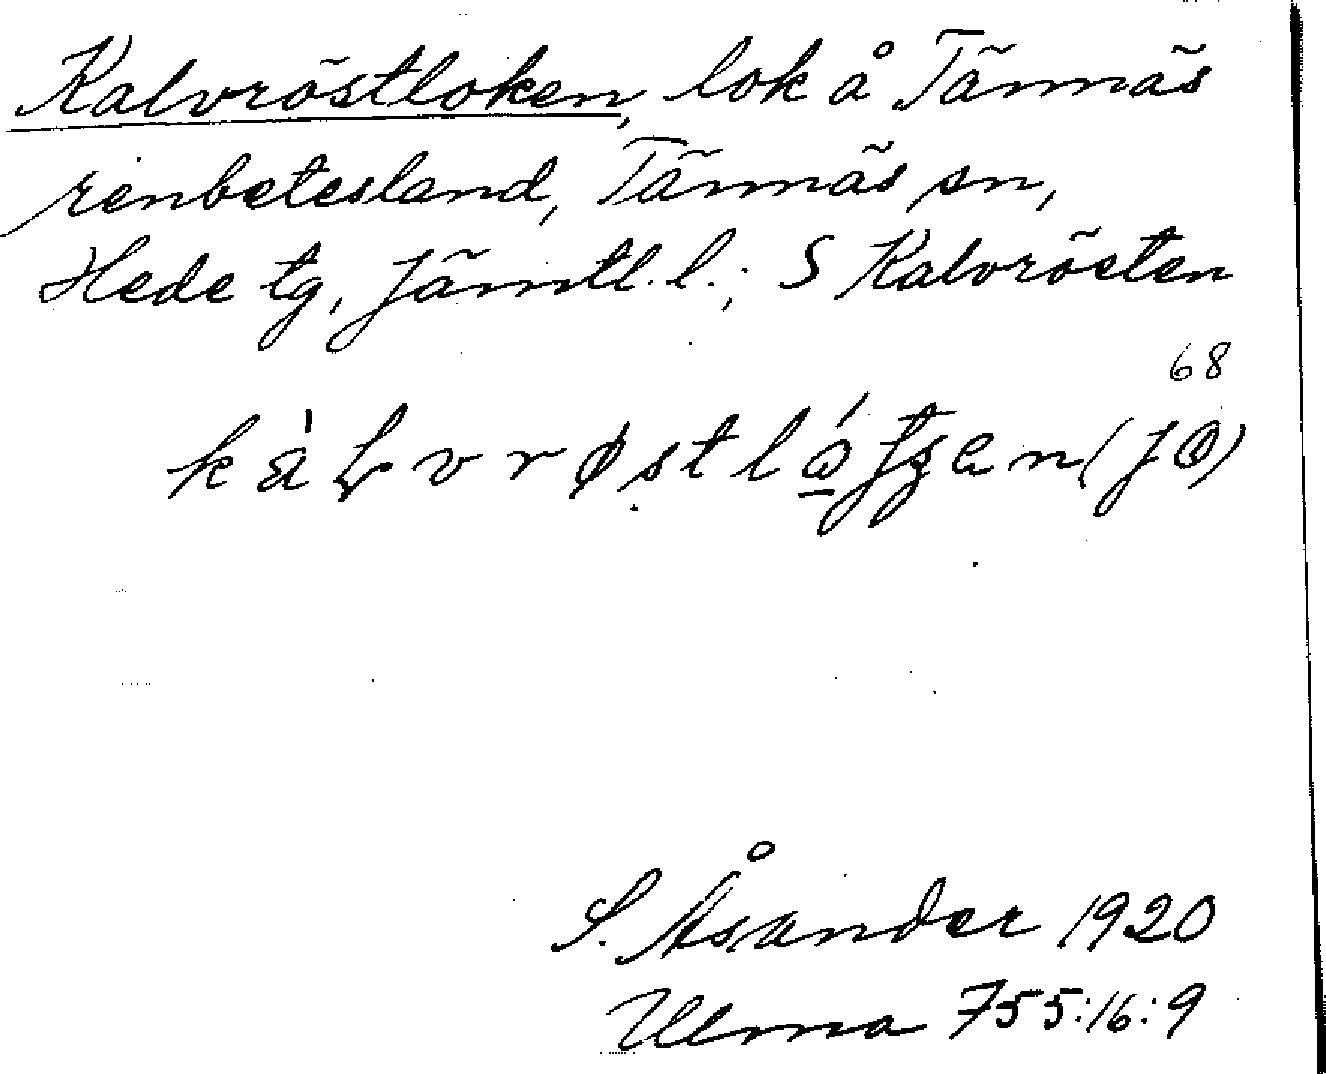 Kalvröstloken, lok å Tännäs
renbetesland, Tännäs sn,
Hede tg, Jämtl. l.; S Kalvrösten
68
(JÖ)
S. Åsander 1920
Ulma 755:16:9